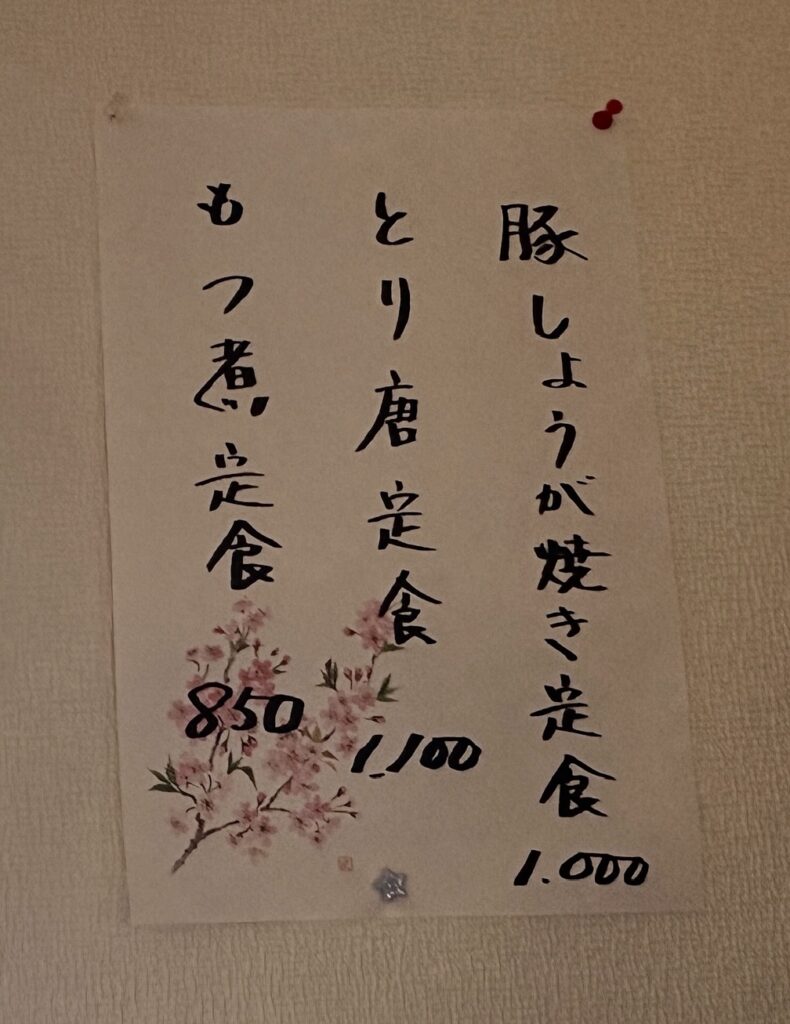 豚しょうが焼き定食
1.000
とり唐定食
1,100
もつ煮定食
850